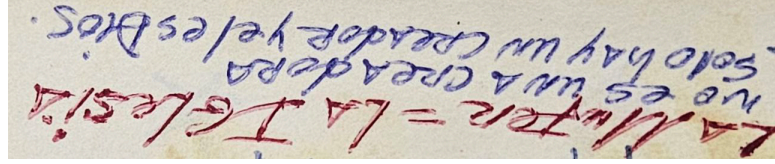 LA MUJER = LA IGLESIA
NO ES UNA CREADORA
SOLO hAY UN CREADOR y el es DIOS.